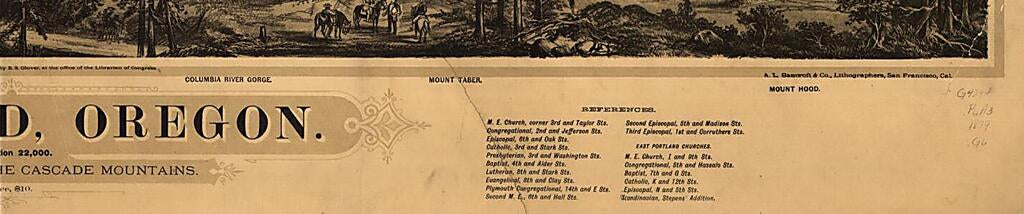 by E. S. Glover, at the office of the Librarian of Congress
A. L. Bancroft & Co., Lithographers, San Francisco, Cal.
COLUMBIA RIVER GORGE.
MOUNT TABER.
MOUNT HOOD.
D, OREGON.
tion 22,000.
HE CASCADE MOUNTAINS.
ce, $10.
REFERENCES.
M. E. Church, corner 3rd and Taylor Sts.
Congregational, 2nd and Jefferson Sts.
Episcopal, 6th and Oak Sts.
Catholic, 3rd and Stark Sts.
Presbyterian, 3rd and Washington Sts.
Baptist, 4th and Alder Sts.
Lutheran, 8th and Stark Sts.
Evangelical, 8th and Clay Sts.
Plymouth Congregational, 14th and E Sts.
Second M. E., 6th and Hall Sts.
Second Episcopal, 5th and Madison Sts.
Third Episcopal, 1st and Corruthers Sts.
EAST PORTLAND CHURCHES.
M. E. Church, I and 9th Sts.
Congregational, 5th and Hassalo Sts.
Baptist, 7th and G Sts.
Catholic, K and 12th Sts.
Episcopal, N and 5th Sts.
Scandinavian, Stepens' Addition.
1879